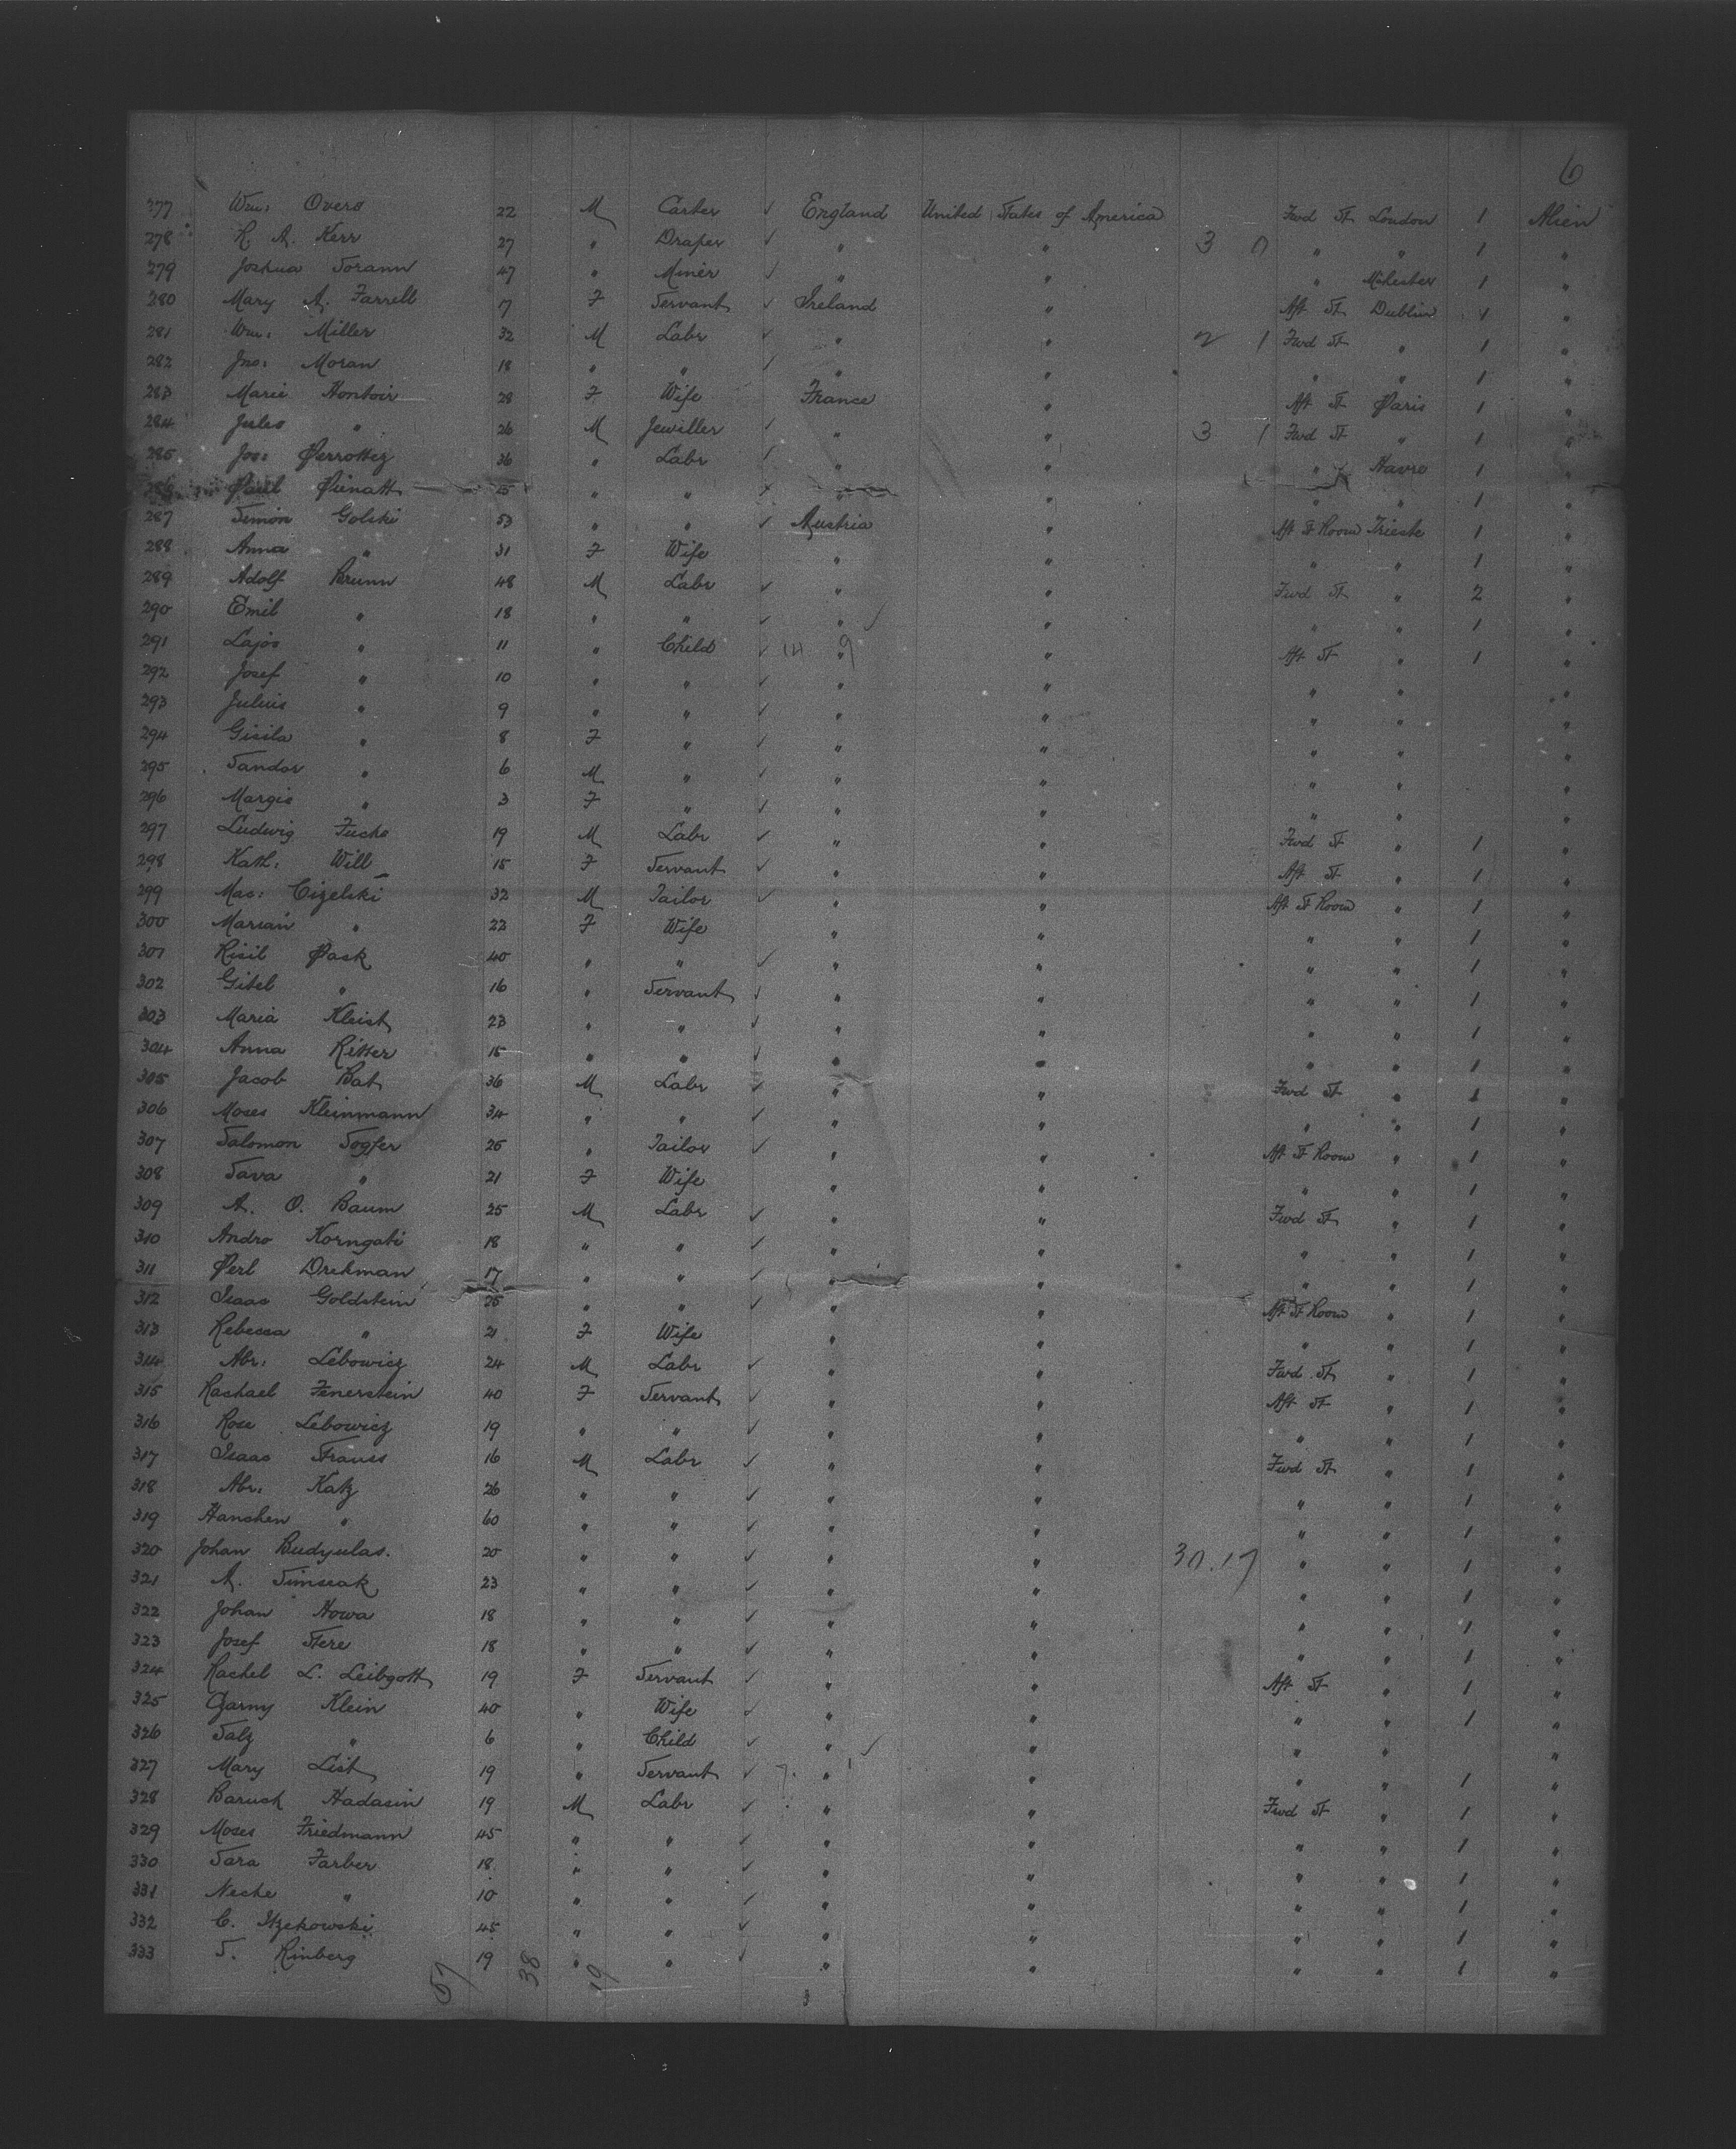 6
277 Wm: Overs 22 M Carter ✓ England United States of America Fwd St London 1 Alien
278 R. A. Kerr 27 " Draper ✓ " " 3 0 " " 1 "
279 Joshua Sorann 47 " Miner ✓ " " " M'chester 1 "
280 Mary A. Farrell 7 F Servant ✓ Ireland " Aft St Dublin 1 "
281 Wm: Miller 32 M Labr ✓ " " 2 1 Fwd St " 1 "
282 Jno: Moran 18 " " ✓ " " " " 1 "
283 Marie Hontoir 28 F Wife France " Aft St Paris 1 "
284 Jules " 26 M Jewiller ✓ " " 3 1 Fwd St " 1 "
285 Jos: Perrottez 36 " Labr ✓ " " " Havre 1 "
286 Paul Pienatt 25 " " ✓ " " " " 1 "
287 Simon Golski 53 " " ✓ Austria " Aft St Room Trieste 1 "
288 Anna " 31 F Wife " " " " 1 "
289 Adolf Brunn 48 M Labr ✓ " " Fwd St " 2 "
290 Emil " 18 " " ✓ " ✓ " " " 1 "
291 Lajos " 11 " Child ✓ 14 9 " " Aft St " 1 "
292 Josef " 10 " " ✓ " " " " "
293 Julius " 9 " " ✓ " " " " "
294 Gisila " 8 F " ✓ " " " " "
295 Sandor " 6 M " ✓ " " " " "
296 Margis " 3 F " ✓ " " " " "
297 Ludwig Fuchs 19 M Labr ✓ " " Fwd St " 1 "
298 Kath: Will 15 F Servant ✓ " " Aft St " 1 "
299 Mac: Cizelski 32 M Tailor ✓ " " Aft St Room " 1 "
300 Marian " 22 F Wife " " " " 1 "
301 Risil Pask 40 " " ✓ " " " " 1 "
302 Gitel " 16 " Servant ✓ " " " " 1 "
303 Maria Kleist 23 " " ✓ " " " " 1 "
304 Anna Ritter 15 " " ✓ " " " " 1 "
305 Jacob Bat 36 M Labr ✓ " " Fwd St " 1 "
306 Moses Kleinmann 34 " " ✓ " " " " 1 "
307 Salomon Sogfer 25 " Tailor ✓ " " Aft St Room " 1 "
308 Sava " 21 F Wife " " " " 1 "
309 A. O. Baum 25 M Labr ✓ " " Fwd St " 1 "
310 Andro Korngati 18 " " ✓ " " " " 1 "
311 Perl Drekman 17 " " ✓ " " " " 1 "
312 Isaac Goldstein 25 " " ✓ " " Aft St Room " 1 "
313 Rebecca " 21 F Wife " " " " 1 "
314 Abr: Lebowicz 24 M Labr ✓ " " Fwd St " 1 "
315 Rachael Fenerstein 40 F Servant ✓ " " Aft St " 1 "
316 Rose Lebowicz 19 " " ✓ " " " " 1 "
317 Isaac Strauss 16 M Labr ✓ " " Fwd St " 1 "
318 Abr: Katz 26 " " ✓ " " " " 1 "
319 Hanchen " 60 " " ✓ " " " " 1 "
320 Johan Budyulas. 20 " " ✓ " " 30.17 " " 1 "
321 A. Simscak 23 " " ✓ " " " " 1 "
322 Johan Howa 18 " " ✓ " " " " 1 "
323 Josef Stere 18 " " ✓ " " " " 1 "
324 Rachel L. Leibgott 19 F Servant ✓ " " Aft St " 1 "
325 Czarny Klein 40 " Wife ✓ " " " " 1 "
326 Salz " 6 " Child ✓ " ✓ " " " "
327 Mary List 19 " Servant ✓ 7. 1 " " " " 1 "
328 Baruch Hadasin 19 M Labr ✓ " " Fwd St " 1 "
329 Moses Friedmann 45 " " ✓ " " " " 1 "
330 Sara Farber 18 " " ✓ " " " " 1 "
331 Neche " 10 " " ✓ " " " " 1 "
332 C. Itzekowski 45 " " ✓ " " " " 1 "
333 S. Rinberg 19 " " ✓ " " " " 1 "
57 38 19 3